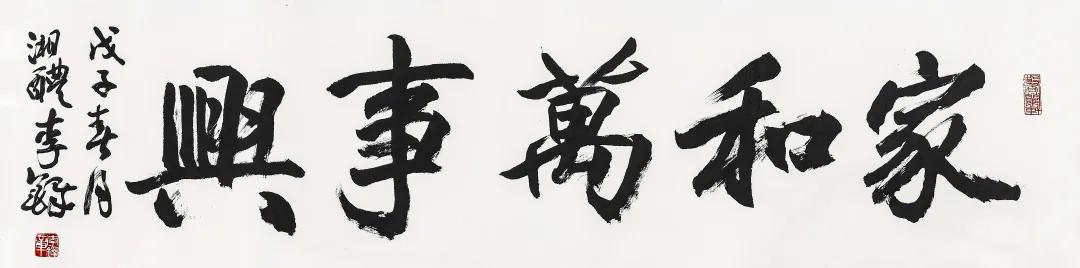 家和萬事興
戊子春月
湘醴李